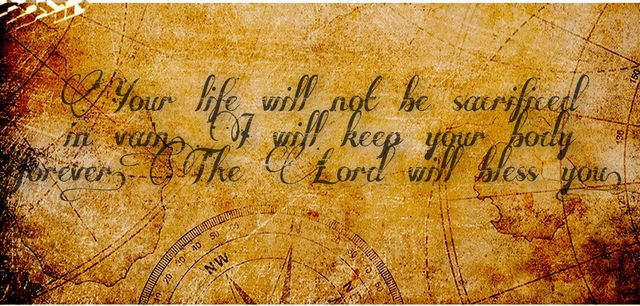 Your life will not be sacrificed
in vain. I will keep your body
forever. The Lord will bless you
NW
N